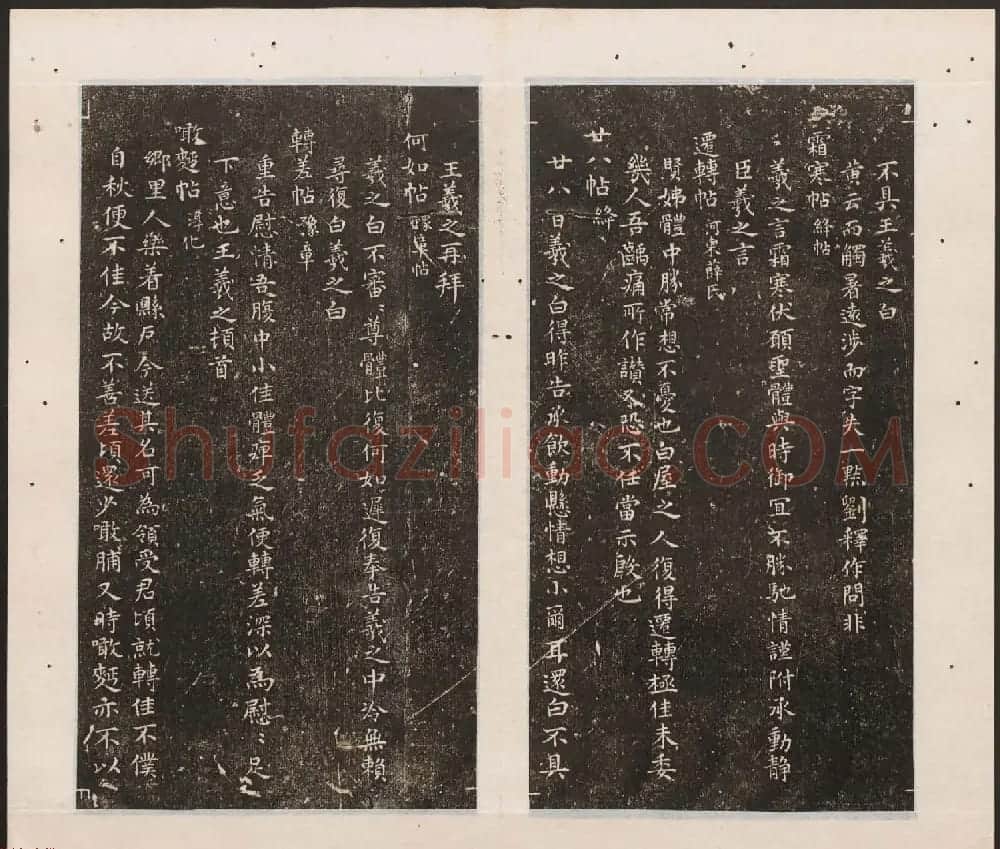 不具王羲之白
黄云而觸暑遠涉而字失一點劉釋作問非
霜寒帖 絳帖
羲之言霜寒伏願聖體與時御宜不勝馳情謹附承動静
臣羲之言
遷轉帖 河東薛氏
賢姊體中勝常想不憂也白屋之人復得遷轉極佳未委
幾人吾齲痛所作讚又恐不任當示殷也
廿八帖 絳
廿八日羲之白得昨告承飲動懸情想小爾耳還白不具
王羲之再拜
何如帖 帖
羲之白不審〻尊體比復何如遲復奉告羲之中冷無賴
尋復白羲之白
轉差帖 豫章
重告慰情吾腹中小佳體彈乏氣便轉差深以為慰〻足
下意也王羲之頓首
噉麪帖 淳化
鄉里人樂着縣户今送其名可為領受君頃就轉佳不僕
自秋便不佳今故不善差頃還少噉脯又時噉麪亦不以之
Shufaziliao.COM